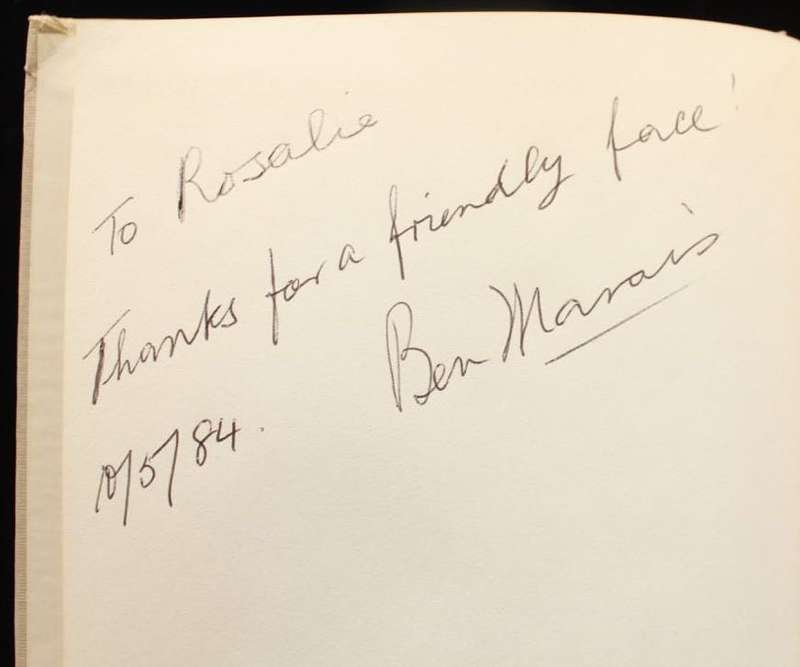 To Rosalie
Thanks for a friendly face!
Ben Marais
10/5/84.